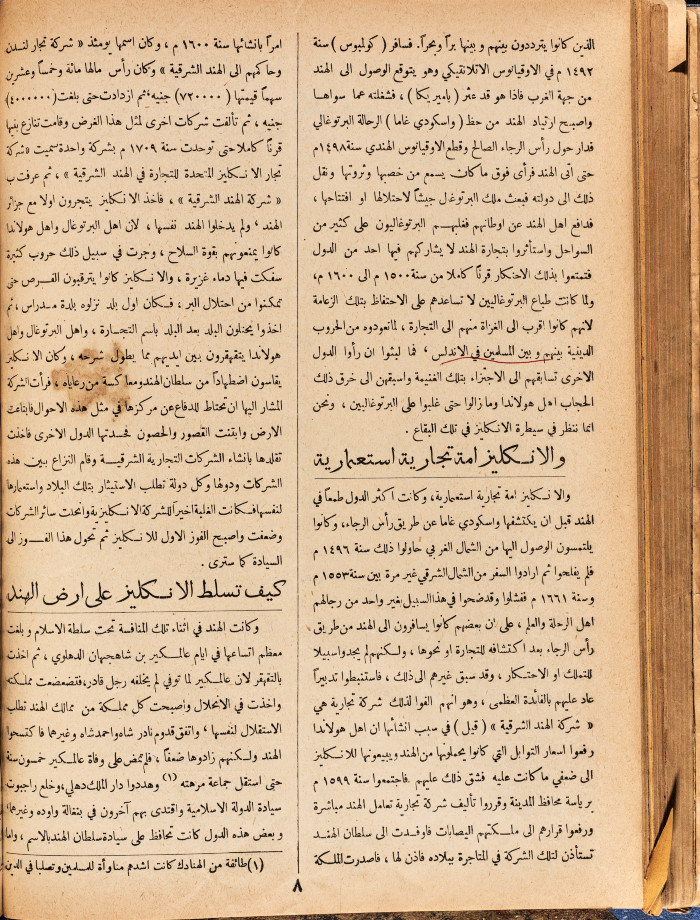 الذين كانوا يترددون بينهم وبينها براً وبحراً. فسافر (كولمبوس) سنة
١٤٩٢ م في الاوقيانوس الاتلانتيكي وهو يتوقع الوصول الى الهند
من جهة الغرب فاذا هو قد عثر (باميريكا)، فشغلته عما سواها
واصبح ارتياد الهند من حظ (واسكودي غاما) الرحالة البرتوغالي
فدار حول رأس الرجاء الصالح وقطع الاوقيانوس الهندي سنة ١٤٩٨م
حتى اتى الهند فرأى فوق ما كان يسمع من خصبها وثروتها ونقل
ذلك الى دولته فبعث ملك البرتوغال جيشاً لاحتلالها او افتتاحها،
فدافع اهل الهند عن اوطانهم فغلبهم البرتوغاليون على كثير من
السواحل واستأثروا بتجارة الهند لا يشاركهم فيها احد من الدول
فتمتعوا بذلك الاحتكار قرناً كاملا من سنة ١٥٠٠ م الى ١٦٠٠ م،
ولما كانت طباع البرتوغاليين لا تساعدهم على الاحتفاظ بتلك الزعامة
لانهم كانوا اقرب الى الغزاة منهم الى التجارة، لما تعودوه من الحروب
الدينية بينهم وبين المسلمين في الاندلس، فما لبثوا ان رأوا الدول
الاخرى تسابقهم الى الاجتزاء بتلك الغنيمة واسبقهن الى خرق ذلك
الحجاب اهل هولاندا وما زالوا حتى غلبوا على البرتوغاليين، ونحن
انما ننظر في سيطرة الانكليز في تلك البقاع.
والانكليز امة تجارية استعمارية
والانكليز امة تجارية استعمارية، وكانت اكثر الدول طمعاً في
الهند قبل ان يكتشفها واسكودي غاما عن طريق رأس الرجاء، وكانوا
يلتمسون الوصول اليها من الشمال الغربي حاولوا ذلك سنة ١٤٩٦ م
فلم يفلحوا ثم ارادوا السفر من الشمال الشرقي غير مرة بين سنة ١٥٥٣ م
وسنة ١٦٦١ م ففشلوا وقد ضحوا في هذا السبيل بغير واحد من رجالهم
اهل الرحلة والعلم، على ان بعضهم كانوا يسافرون الى الهند من طريق
رأس الرجاء بعد اكتشافه للتجارة او نحوها، ولكنهم لم يجدوا سبيلا
للتملك او الاحتكار، وقد سبق غيرهم الى ذلك، فاستنبطوا تدبيراً
عاد عليهم بالفائدة العظمى، وهو انهم الفوا لذلك شركة تجارية هي
« شركة الهند الشرقية » (قيل) في سبب انشائها ان اهل هولاندا
رفعوا اسعار التوابل التي كانوا يحملونها من الهند ويبيعونها للانكليز
الى ضعفي ما كانت عليه فشق ذلك عليهم فاجتمعوا سنة ١٥٩٩ م
برياسة محافظ المدينة وقرروا تأليف شركة تجارية تعامل الهند مباشرة
ورفعوا قرارهم الى ملكتهم اليصابات فاوفدت الى سلطان الهند
تستأذن لتلك الشركة في المتاجرة ببلاده فاذن لها، فاصدرت الملكة
امراً بانشائها سنة ١٦٠٠ م، وكان اسمها يومئذ « شركة تجار لندن
وحاكمهم الى الهند الشرقية » وكان رأس مالها مائة وخمساً وعشرين
سهماً قيمتها (٧٢٠٠٠) جنيه، ثم ازدادت حتى بلغت (٤٠٠٠٠٠)
جنيه، ثم تألفت شركات اخرى لمثل هذا الغرض وقامت تنازع بينها
قرناً كاملا حتى توحدت سنة ١٧٠٩ م بشركة واحدة سميت «شركة
تجار الانكليز المتحدة للتجارة في الهند الشرقية »، ثم عرفت ب
« شركة الهند الشرقية »، فاخذ الانكليز يتجرون اولا مع جزائر
الهند، ولم يدخلوا الهند نفسها، لان اهل البرتوغال واهل هولاندا
كانوا يمنعونهم بقوة السلاح، وجرت في سبيل ذلك حروب كثيرة
سفكت فيها دماء غزيرة، والانكليز كانوا يترقبون الفرص حتى
تمكنوا من احتلال البر، فكان اول بلد نزلوه بلدة مدراس، ثم
اخذوا يحتلون البلد بعد البلد باسم التجارة، واهل البرتوغال واهل
هولاندا يتقهقرون بين ايديهم مما يطول شرحه، وكان الانكليز
يقاسون اضطهاداً من سلطان الهند ومعاكسة من رعاياه، فرأت الشركة
المشار اليها ان تحتاط للدفاع عن مركزها في مثل هذه الاحوال فابتاعت
الارض وابتنت القصور والحصون فحسدتها الدول الاخرى فاخذت
تقلدها بانشاء الشركات التجارية الشرقية وقام النزاع بين هذه
الشركات ودولها وكل دولة تطلب الاستيثار بتلك البلاد واستعمارها
لنفسها فكانت الغلبة اخيراً للشركة الانكليزية وانحلت سائر الشركات
وضعفت واصبح الفوز الاول للانكليز ثم تحول هذا الفوز الى
السيادة كما سترى.
كيف تسلط الانكليز على ارض الهند
وكانت الهند في اثناء تلك المنافسة تحت سلطة الاسلام وبلغت
معظم اتساعها في ايام عالمكير بن شاهجيهان الدهلوي، ثم اخذت
بالتقهقر لان عالمكير لما توفي لم يخلفه رجل قادر، فتضعضعت مملكته
واخذت في الانحلال واصبحت كل مملكة من ممالك الهند تطلب
الاستقلال لنفسها، واتفق قدوم نادر شاه واحمد شاه وغيرها فاكتسحوا
الهند ولكنهم زادوها ضعفاً، فلم تمض على وفاة عالمكير خمسون سنة
حتى استقل جماعة مرهته (١) وهددوا دار الملك دهلي، وخلع راجبوت
سيادة الدولة الاسلامية واقتدى بهم آخرون في بنغالة واوده وغيرها،
وبعض هذه الدول كانت تحافظ على سيادة سلطان الهند بالاسم، واما
(١) طائفة من الهنادك كانت اشدهم مناوأة للمسلمين وتصلبا في الدين
٨